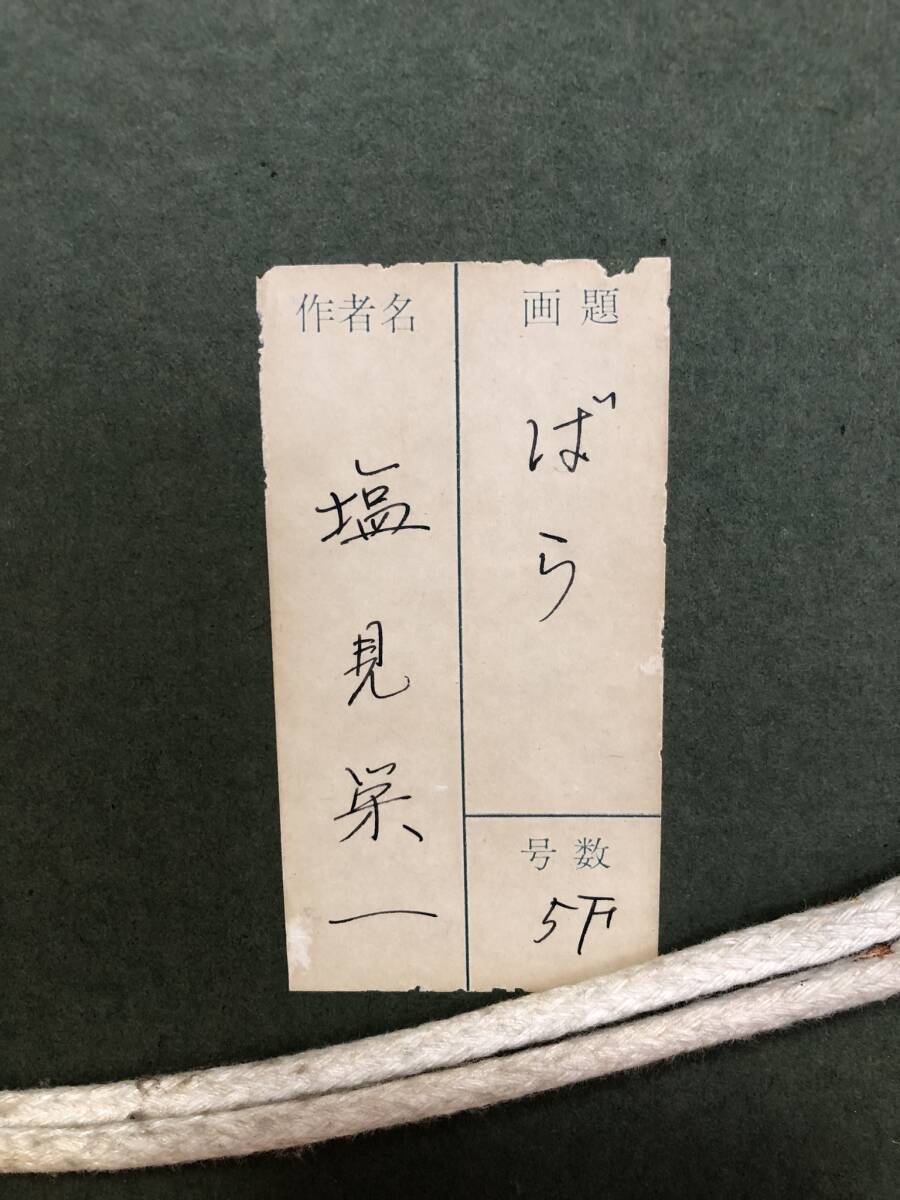 画題
ばら
号数
5F
作者名
塩見栄一